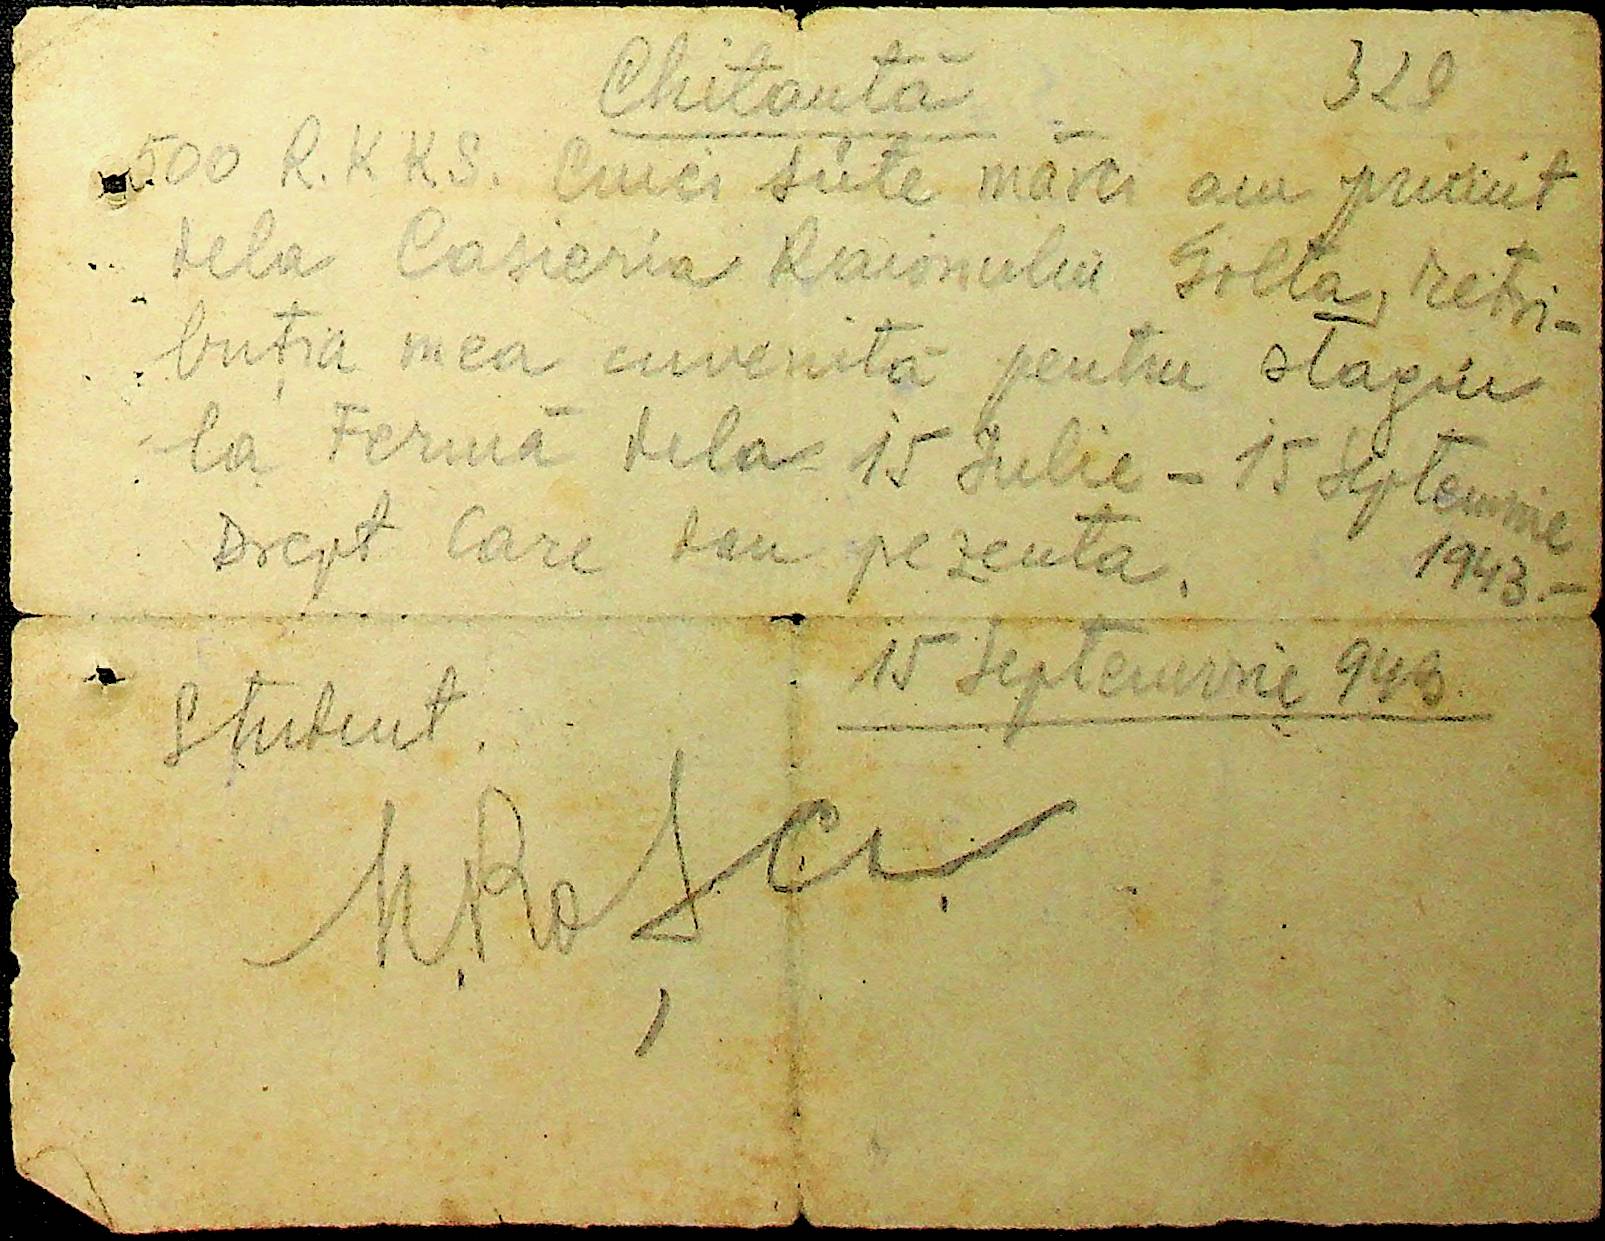 Chitanță 328
500 R.K.K.S. Cinci sute mărci am primit
dela Casieria Raionului Golta, retri-
buția mea cuvenită pentru stagiu
la Fermă dela 15 Iulie – 15 Septemvrie
1943.–
Drept care dau pezenta.
15 Septemvrie 943
Student.
N. Roșcu